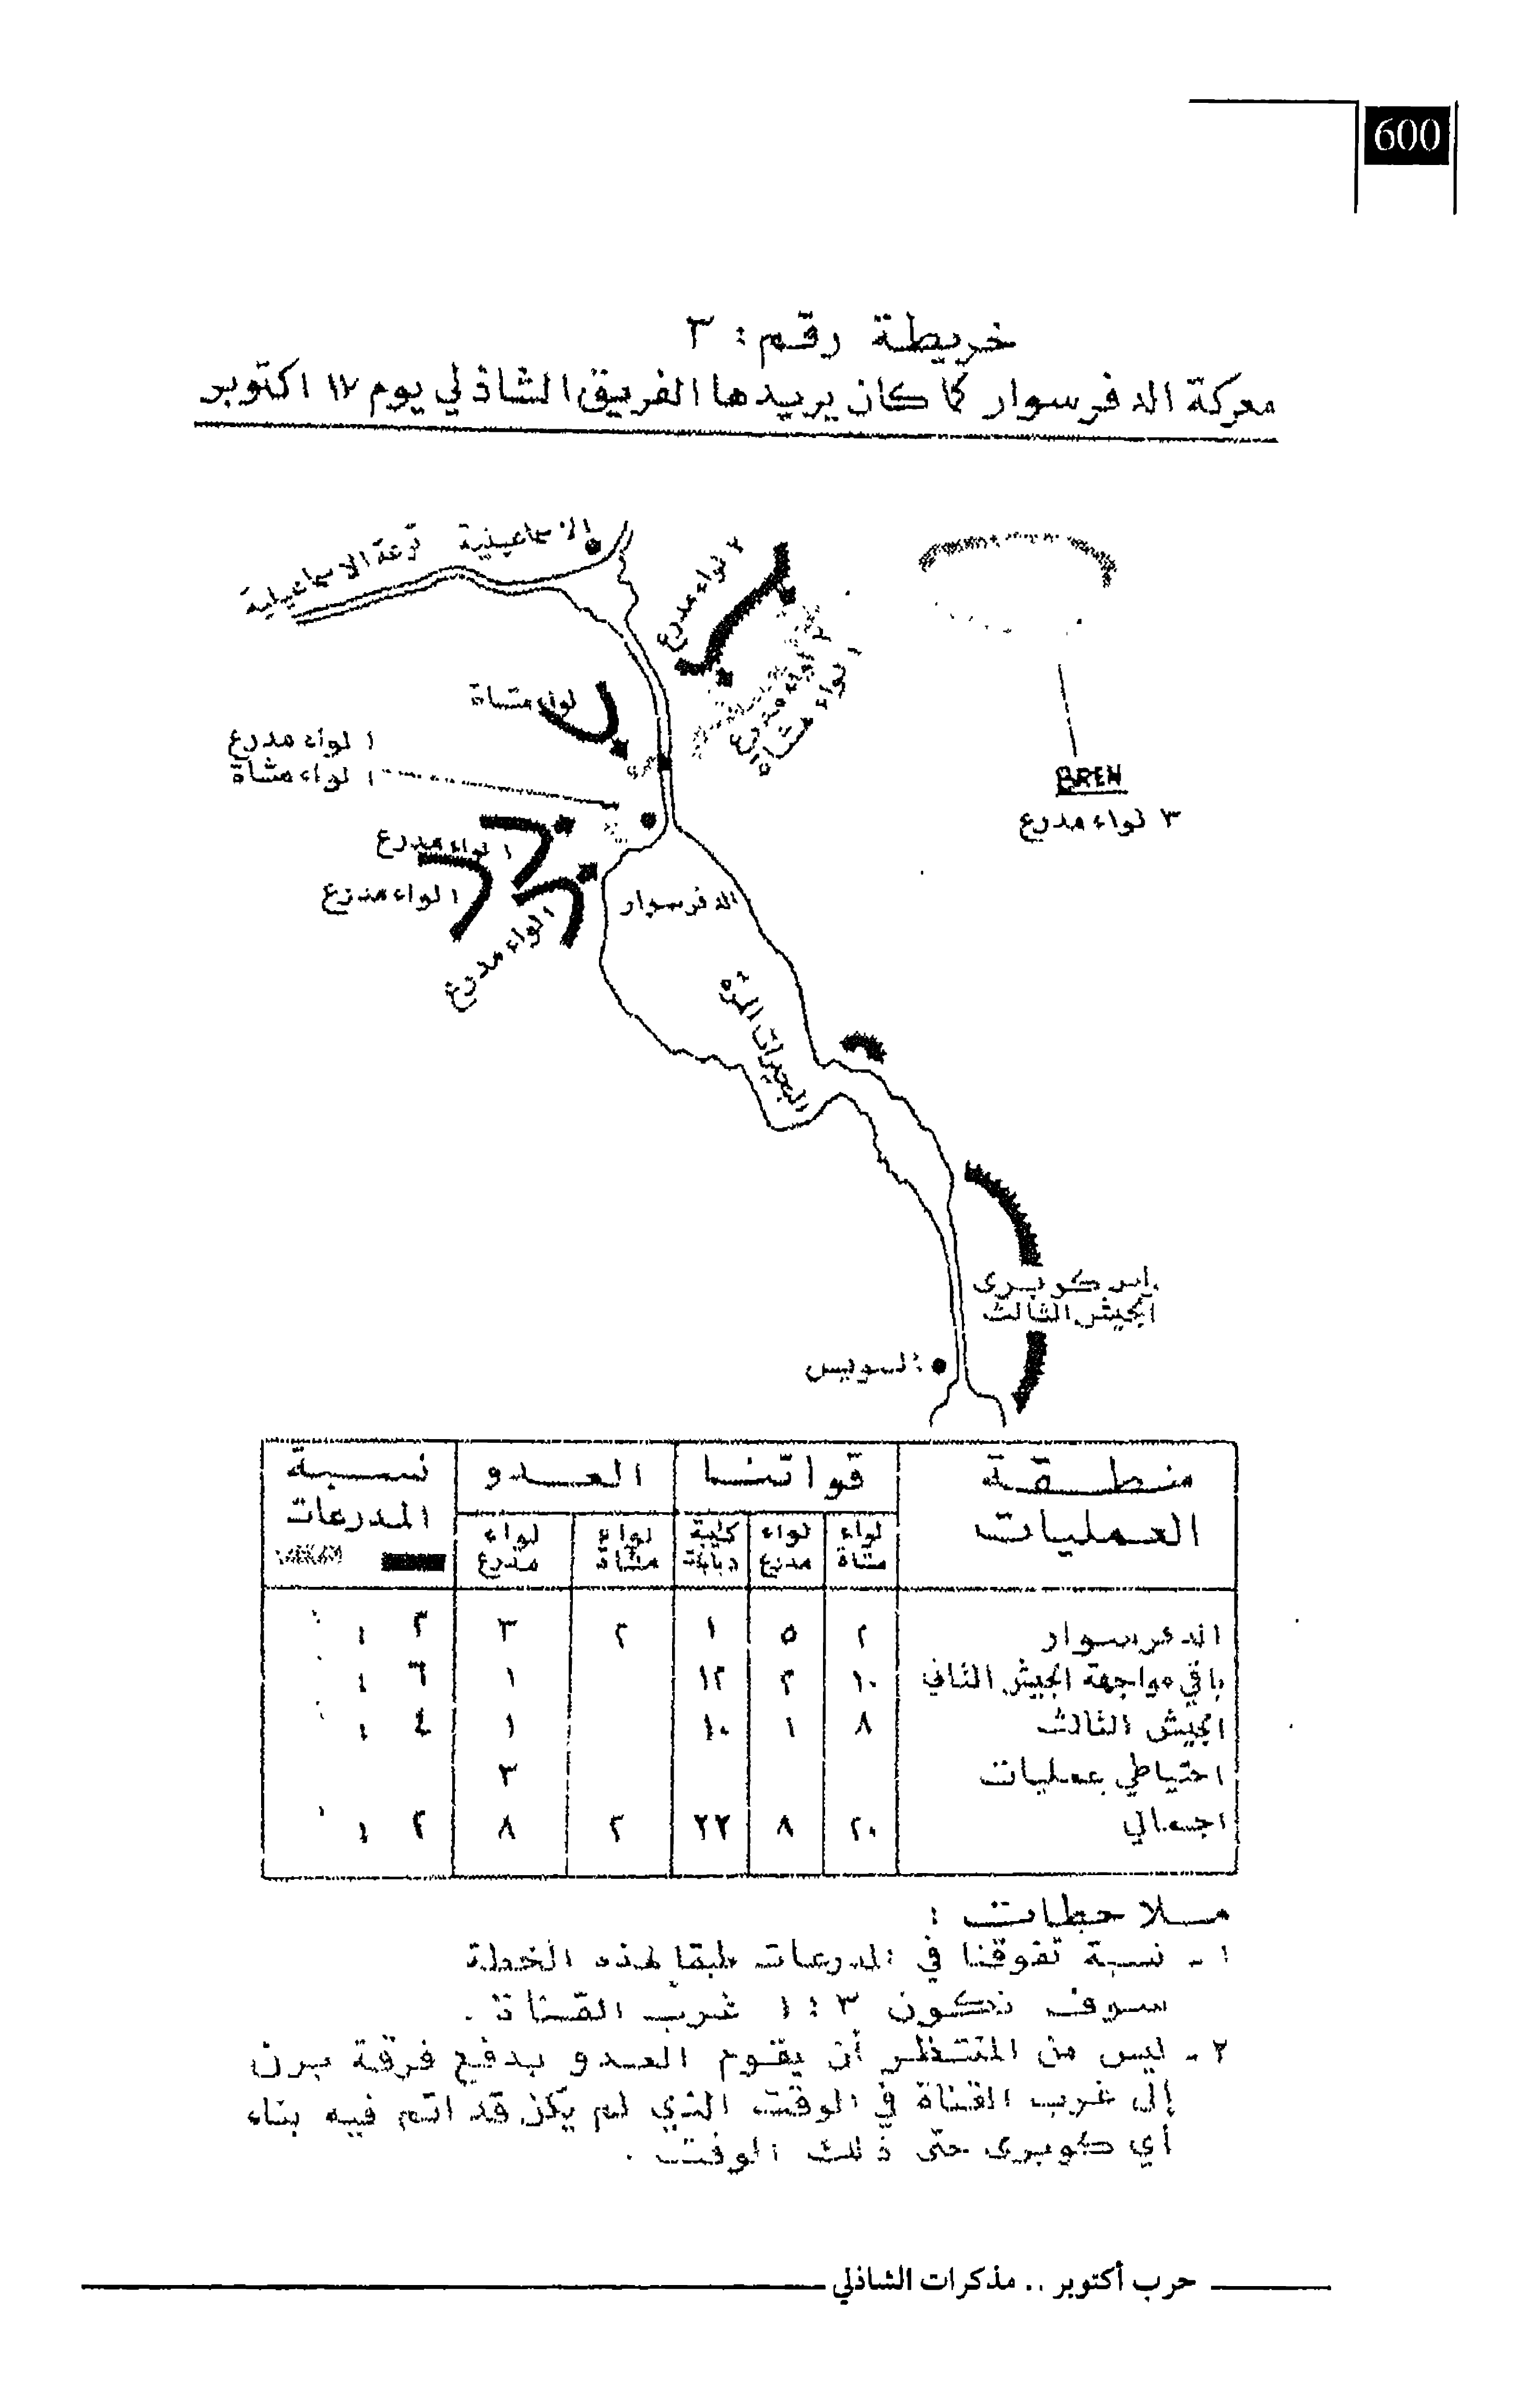 600
خريطة رقم : ٣
معركة الدفرسوار كما كان يريدها الفريق الشاذلي يوم ١٧ اكتوبر
الاسماعيلية
ترعة الاسماعيلية
٢ لواء مدرع
لواء مدرع
١ لواء مشاة
لواء مشاة
١ لواء مدرع
١ لواء مشاة
BREN
٣ لواء مدرع
١ لواء مدرع
١ لواء مدرع
١ لواء مدرع
الدفرسوار
البحيرات المره
راس كوبرى
الجيش الثالث
السويس
منطقة العمليات | قواتنا | العدو | نسبة المدرعات
لواء مشاة | لواء مدرع | كتيبة دبابات | لواء مشاة | لواء مدرع
الدفرسوار ٢ ٥ ١ ٢ ٣ ٢ : ١
باقي مواجهة الجيش الثاني ١٠ ٢ ١٢ ١ ٦ : ١
الجيش الثالث ٨ ١ ١٠ ١ ٤ : ١
احتياطي عمليات ٣
اجمالي ٢٠ ٨ ٢٢ ٢ ٨ ٢ : ١
ملاحظات :
١ - نسبة تفوقنا في المدرعات طبقا لهذه الخطة
سوف تكون ٣ : ١ غرب القناة .
٢ - ليس من المنتظر أن يقوم العدو بدفع فرقة برن
إلى غرب القناة في الوقت الذي لم يكن قد اتم فيه بناء
أي كوبرى حتى ذلك الوقت .
حرب أكتوبر .. مذكرات الشاذلي